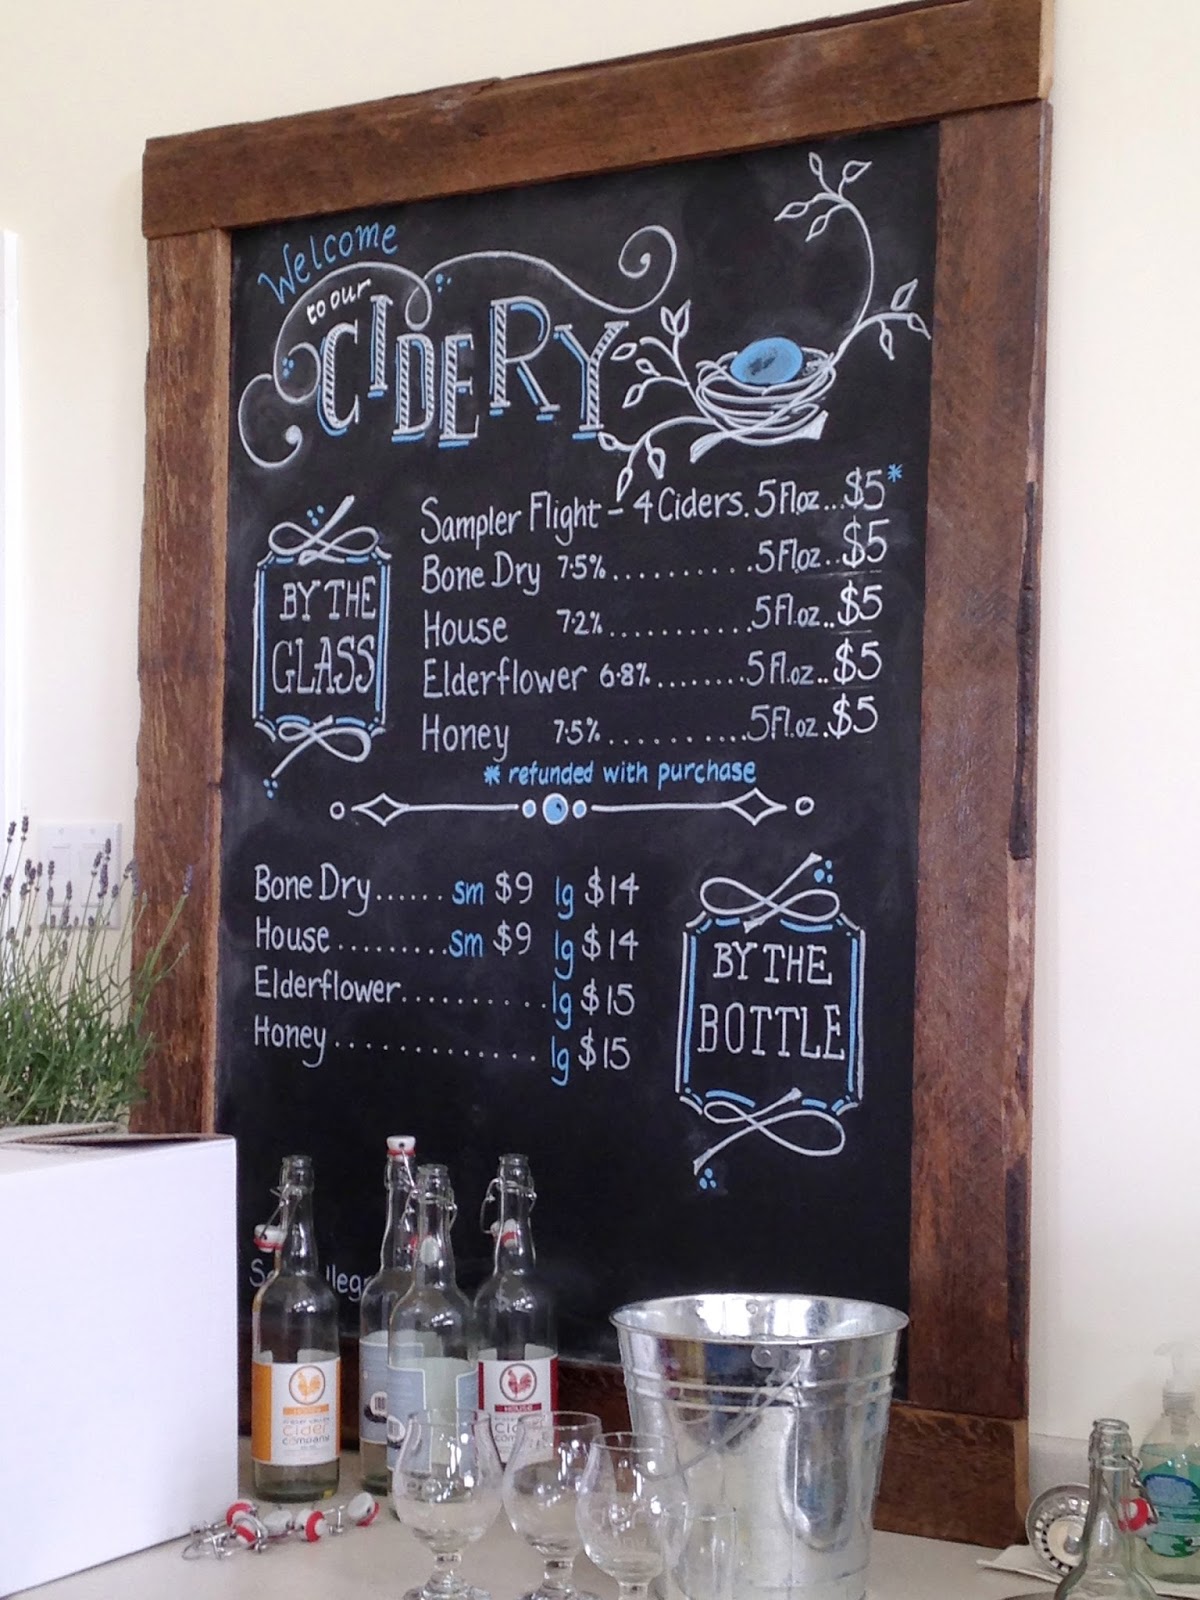 Welcome
to our
CIDERY
Sampler Flight – 4 Ciders. 5 Fl.oz...$5*
Bone Dry 7.5%..........5 Fl.oz...$5
House 7.2%...........5 Fl.oz..$5
Elderflower 6.8%........5 Fl.oz..$5
Honey 7.5%..........5 Fl.oz.$5
* refunded with purchase
BY THE
GLASS
Bone Dry...... sm $9 lg $14
House.........sm $9 lg $14
Elderflower...........lg $15
Honey.............. lg $15
BY THE
BOTTLE
HONEY
Cider
Company
HOUSE
Cider